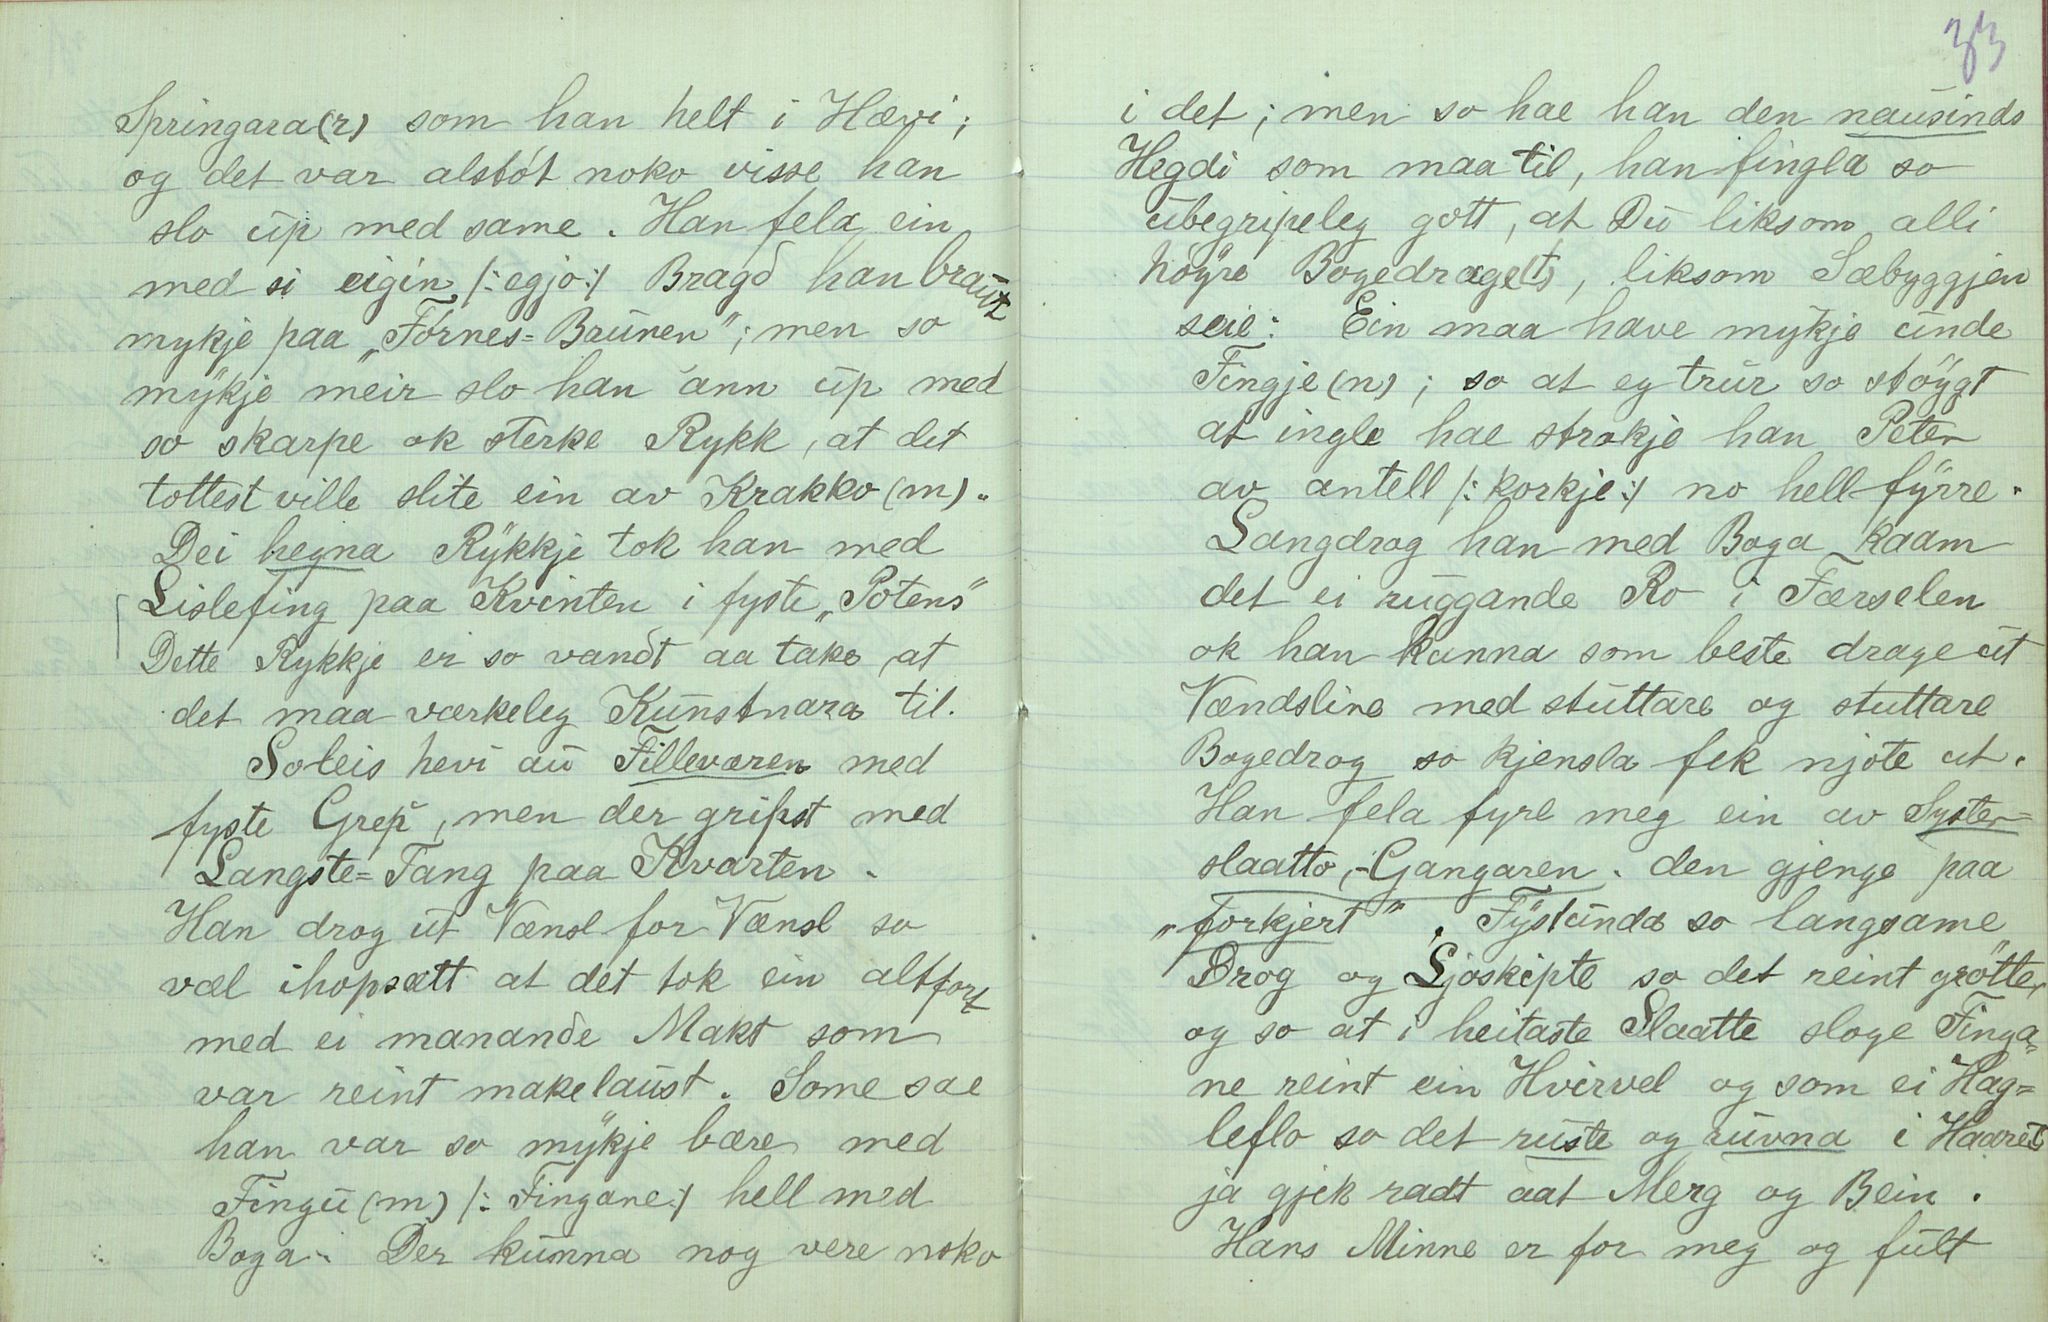 Springara(r) som han helt i Hævi;
og det var alstót noko visse han
slo up med same. Han fela ein
med si eigin /: egjo :/ Bragd han braut
mykje paa „Fornes-Brunen"; men so
mykje meir slo han ann up med
so skarpe ok sterke Rykk, at det
tottest ville slite ein av Krakko (m).
Dei hegna Rykkje tok han med
Lislefing paa Kvinten i fyste „Potens"
Dette Rykkje er so vandt aa take at
det maa værkeleg Kunstnara til.
Soleis hevi au Filleværen med
fyste Grep, men der gripst med
Langste-Tang paa Kvarten.
Han drog ut Vænsl for Vænsl so
væl ihopsætt at det tok ein altfort
med ei manande Makt som
var reint makelaust. Some sae
han var so mykje bære med
Fingu (m) /: Fingane :/ hell med
Boga. Der kunna nog vere noko
33
i det; men so hae han den nausinds
Hegdi som maa til, han fingla so
ubegripeleg gott, at Du liksom alli
höyre Bogedraget(s), liksom Sæbyggjen
seie: Ein maa have mykje unde
Fingje (n); so at eg trur so stöygt
at ingle hae strokje han Peter
av antell /: korkje :/ no hell fyrre.
Langdrog han med Boga kaam
det ei ruggande Ro i Færselen
ok han kunna som beste drage ut
Vændsline med stuttare og stuttare
Bogedrog so kjensla fek njote ut.
Han fela fyre meg ein av Syster-
slaatto, - Gangaren. den gjenge paa
„forkjert". Fystunda so langsame
Drog og Ljoskipte so det reint grötter
og so at i heitaste Slaatte sloge Finga-
ne reint ein Hvirvel og som ei Hag-
leflo so det ruste og ruvna i Haaret
ja gjek radt aat Merg og Bein.
Hans Minne er for meg og fult